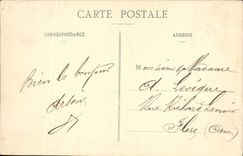 CARTE POSTALE
CORRESPONDANCE
ADRESSE
Bien le bonjour
Arsène
Monsieur & Madame
A. Levêque
Rue Richard Lenoir
Flers (Orne)